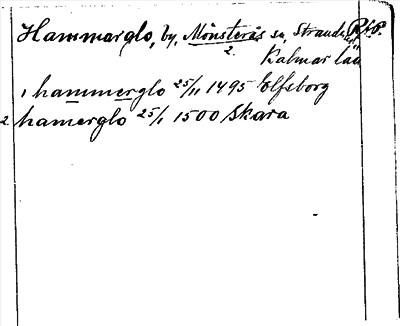 Hammarglo, by, Mönsterås sn, Strands R.A.P.
2.
Kalmar län
1 hammerglo 25/11 1495 Elfsborg
2 hamerglo 25/1 1500 Skara